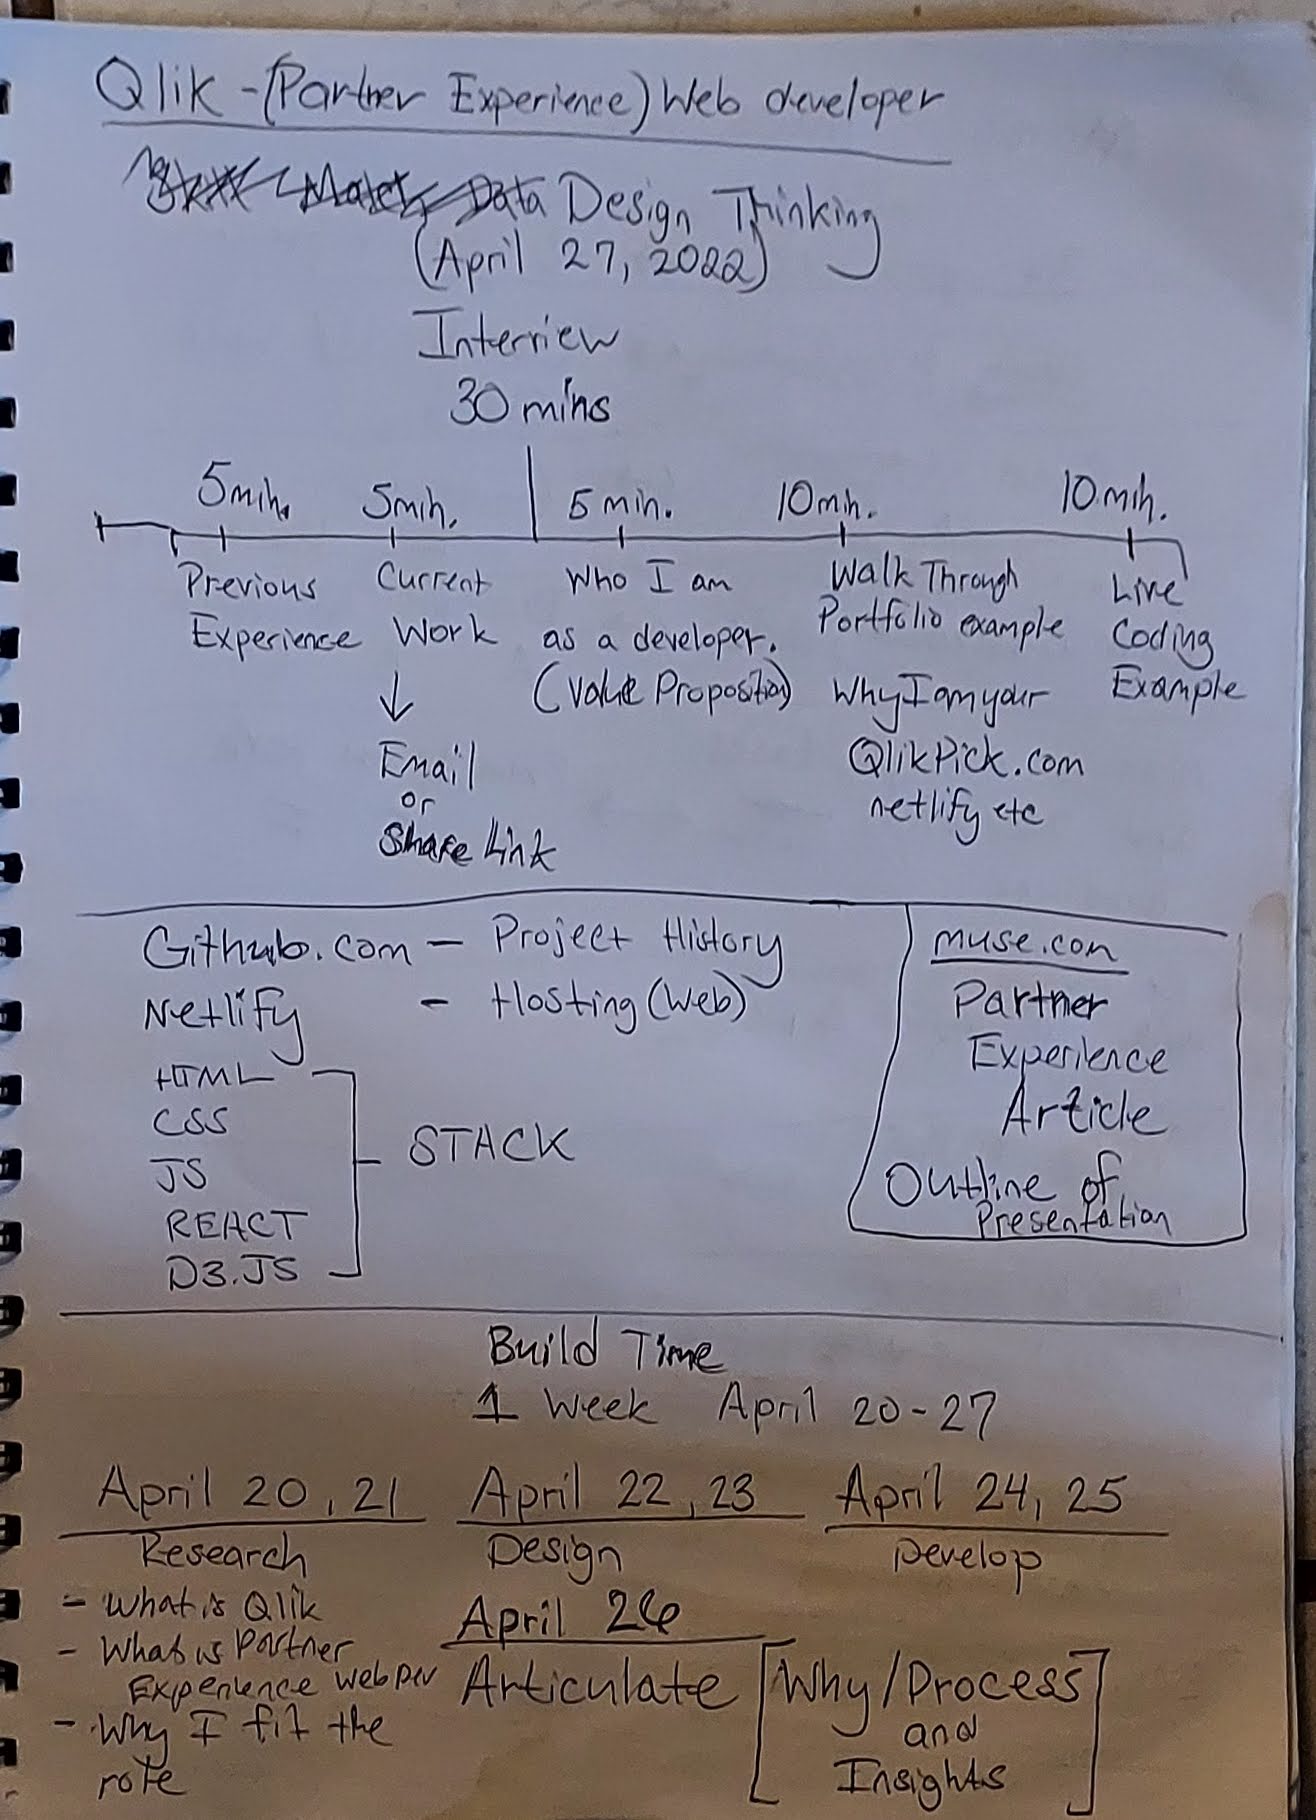 Qlik - (Partner Experience) Web developer
Data Design Thinking
(April 27, 2022)
Interview
30 mins
5 min. 5 min. 5 min. 10 min. 10 min.
Previous Experience
Current Work
↓
Email
or
Share Link
Who I am
as a developer.
(Value Proposition)
Walk Through
Portfolio example
Why I am your
QlikPick.com
netlify etc
Live
Coding
Example
Github.com - Project History
Netlify - Hosting (Web)
HTML
CSS
JS
REACT
D3.JS
STACK
muse.com
Partner
Experience
Article
Outline of
Presentation
Build Time
1 Week April 20-27
April 20, 21
Research
- What is Qlik
- What is Partner
Experience Web Dev
- Why I fit the
role
April 22, 23
Design
April 24, 25
Develop
April 26
Articulate [Why/Process
and
Insights]